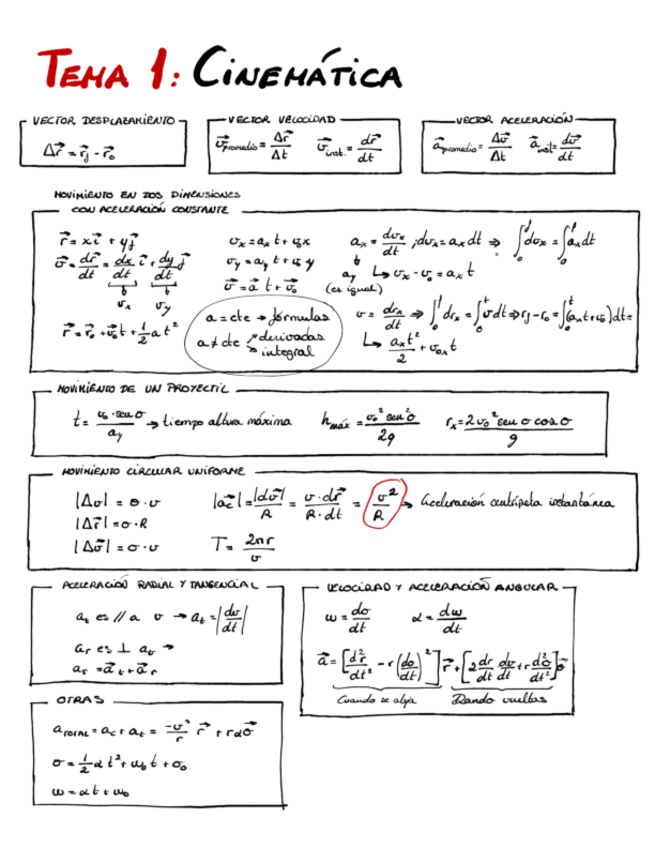 TEMA 1: CINEMÁTICA
VECTOR DESPLAZAMIENTO
Δr⃗ = r⃗j - r⃗o
VECTOR VELOCIDAD
v⃗promedio = Δr⃗/Δt   v⃗inst. = dr⃗/dt
VECTOR ACELERACIÓN
a⃗promedio = Δv⃗/Δt   a⃗inst = dv⃗/dt
MOVIMIENTO EN DOS DIMENSIONES
CON ACELERACIÓN CONSTANTE
r⃗ = xi⃗ + yj⃗
v⃗ = dr⃗/dt = dx/dt i⃗ + dy/dt j⃗
vx   vy
r⃗ = r⃗o + v⃗o t + 1/2 a t²
vx = ax t + vox
vy = ay t + voy
v⃗ = a⃗ t + v⃗o
a = cte → fórmulas
a ≠ cte → derivadas
→ integral
ax = dvx/dt ; dvx = ax dt ⇒ ∫dvx = ∫ax dt
ay ↳ vx - vo = ax t
(es igual)
v = drx/dt ⇒ ∫drx = ∫v dt ⇒ rj - ro = ∫(ax t + vo) dt =
↳ ax t²/2 + vox t
MOVIMIENTO DE UN PROYECTIL
t = vo · sen σ/ay → tiempo altura máxima   hmáx = vo² sen² σ/2g   rx = 2vo² sen σ cos σ/g
MOVIMIENTO CIRCULAR UNIFORME
|Δv| = σ · v   |a⃗c| = |dv⃗|/R = v · dr⃗/R · dt = v²/R → Aceleración centrípeta instantánea
|Δr⃗| = σ · R
|Δv⃗| = σ · v   T = 2πr/v
ACELERACIÓN RADIAL Y TANGENCIAL
at es // a v → at = |dv/dt|
ar es ⊥ at →
ar = a⃗t + a⃗r
VELOCIDAD Y ACELERACIÓN ANGULAR
ω = dσ/dt   α = dω/dt
a⃗ = [d²r/dt² - r(dσ/dt)²] r⃗ + [2 dr/dt dσ/dt + r d²σ/dt²] σ⃗
Cuando se aleja   Dando vueltas
OTRAS
aTOTAL = ac + at = -v²/r r⃗ + rασ⃗
σ = 1/2 α t² + ωo t + σo
ω = αt + ωo